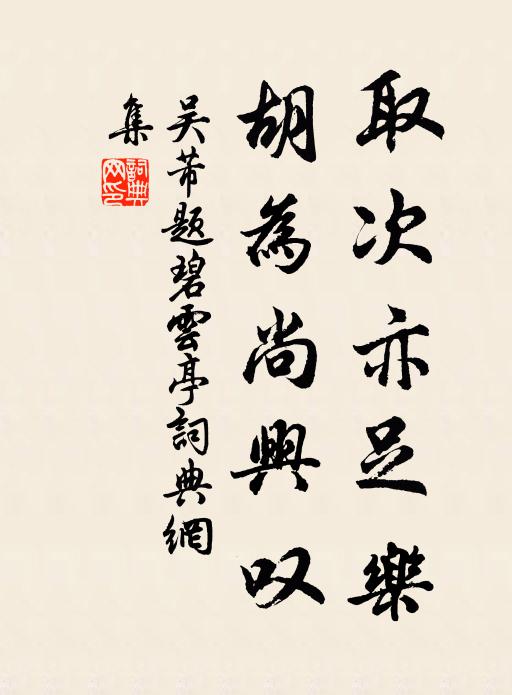 取次亦足樂
胡為尚興叹
吴芾题碧雲亭詞典網
集
詞典網印